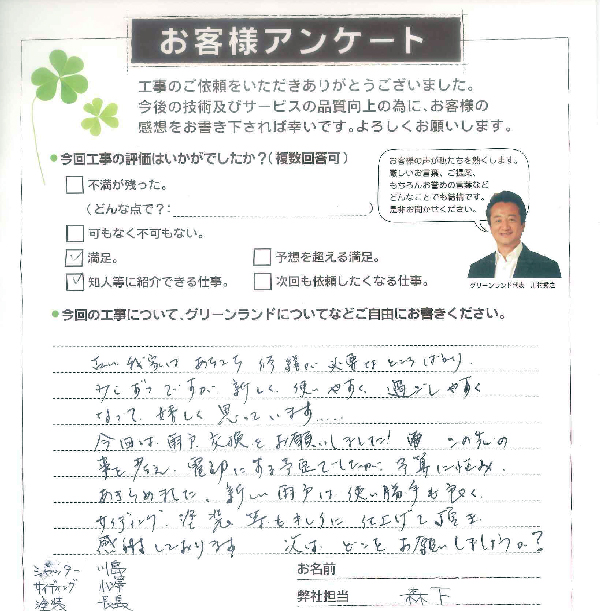 お客様アンケート
工事のご依頼をいただきありがとうございました。
今後の技術及びサービスの品質向上の為に、お客様の
感想をお書き下されば幸いです。よろしくお願いします。
今回工事の評価はいかがでしたか?(複数回答可)
不満が残った。
(どんな点で?:)
可もなく不可もない。
満足。
予想を超える満足。
知人等に紹介できる仕事。
次回も依頼したくなる仕事。
お客様の声が私たちを熱くします。
厳しいお言葉、ご提案、
もちろんお誉めの言葉など
どんなことでも結構です。
是非お聞かせください。
グリーンランド代表
今回の工事について、グリーンランドについてなどご自由にお書きください。
我家は あちこち 修繕が 必要なところばかり
少しずつですが 新しく、使いやすく、過ごしやすく
なって、嬉しく思っています.....
今回は、雨戸交換をお願いしました! この先の
事を考え、電動にする予定でしたが、予算に悩み、
あきらめました。新しい雨戸は使い勝手も良く、
サイディング、塗装等もキレイに仕上げて頂き
感謝しております 次は、どこをお願いしましょうか?
シャッター 川島
サイディング 小澤
塗装 長島
お名前
弊社担当 森下